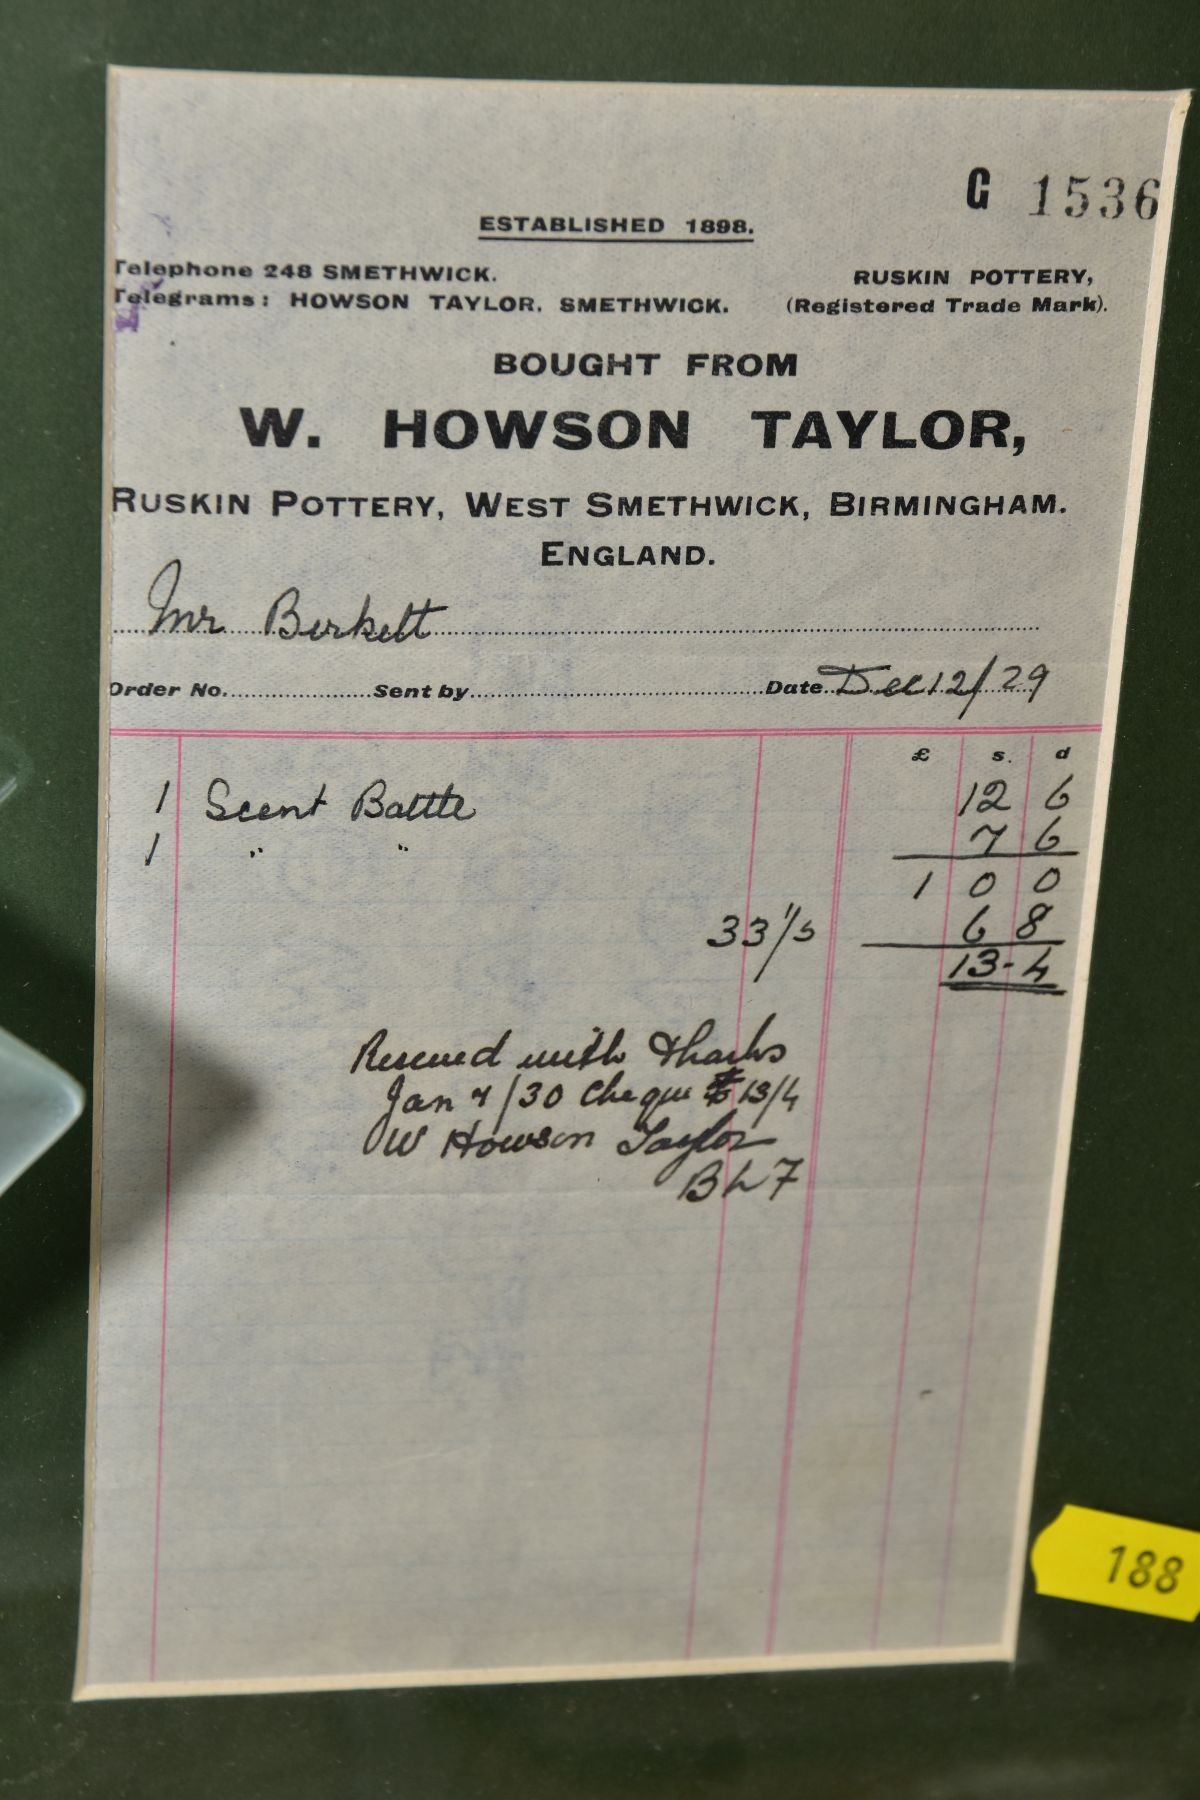 G 1536
ESTABLISHED 1898.
Telephone 248 SMETHWICK.
RUSKIN POTTERY,
Telegrams: HOWSON TAYLOR, SMETHWICK.
(Registered Trade Mark).
BOUGHT FROM
W. HOWSON TAYLOR,
RUSKIN POTTERY, WEST SMETHWICK, BIRMINGHAM.
ENGLAND.
Mr Birkett
Order No. Sent by Date Dec 12/29
£ s. d
1 Scent Bottle 12 6
1 " " 7 6
1 0 0
33 1/3 6 8
13-4
Received with thanks
Jan 7/30 Cheque 13/4
W Howson Taylor
188